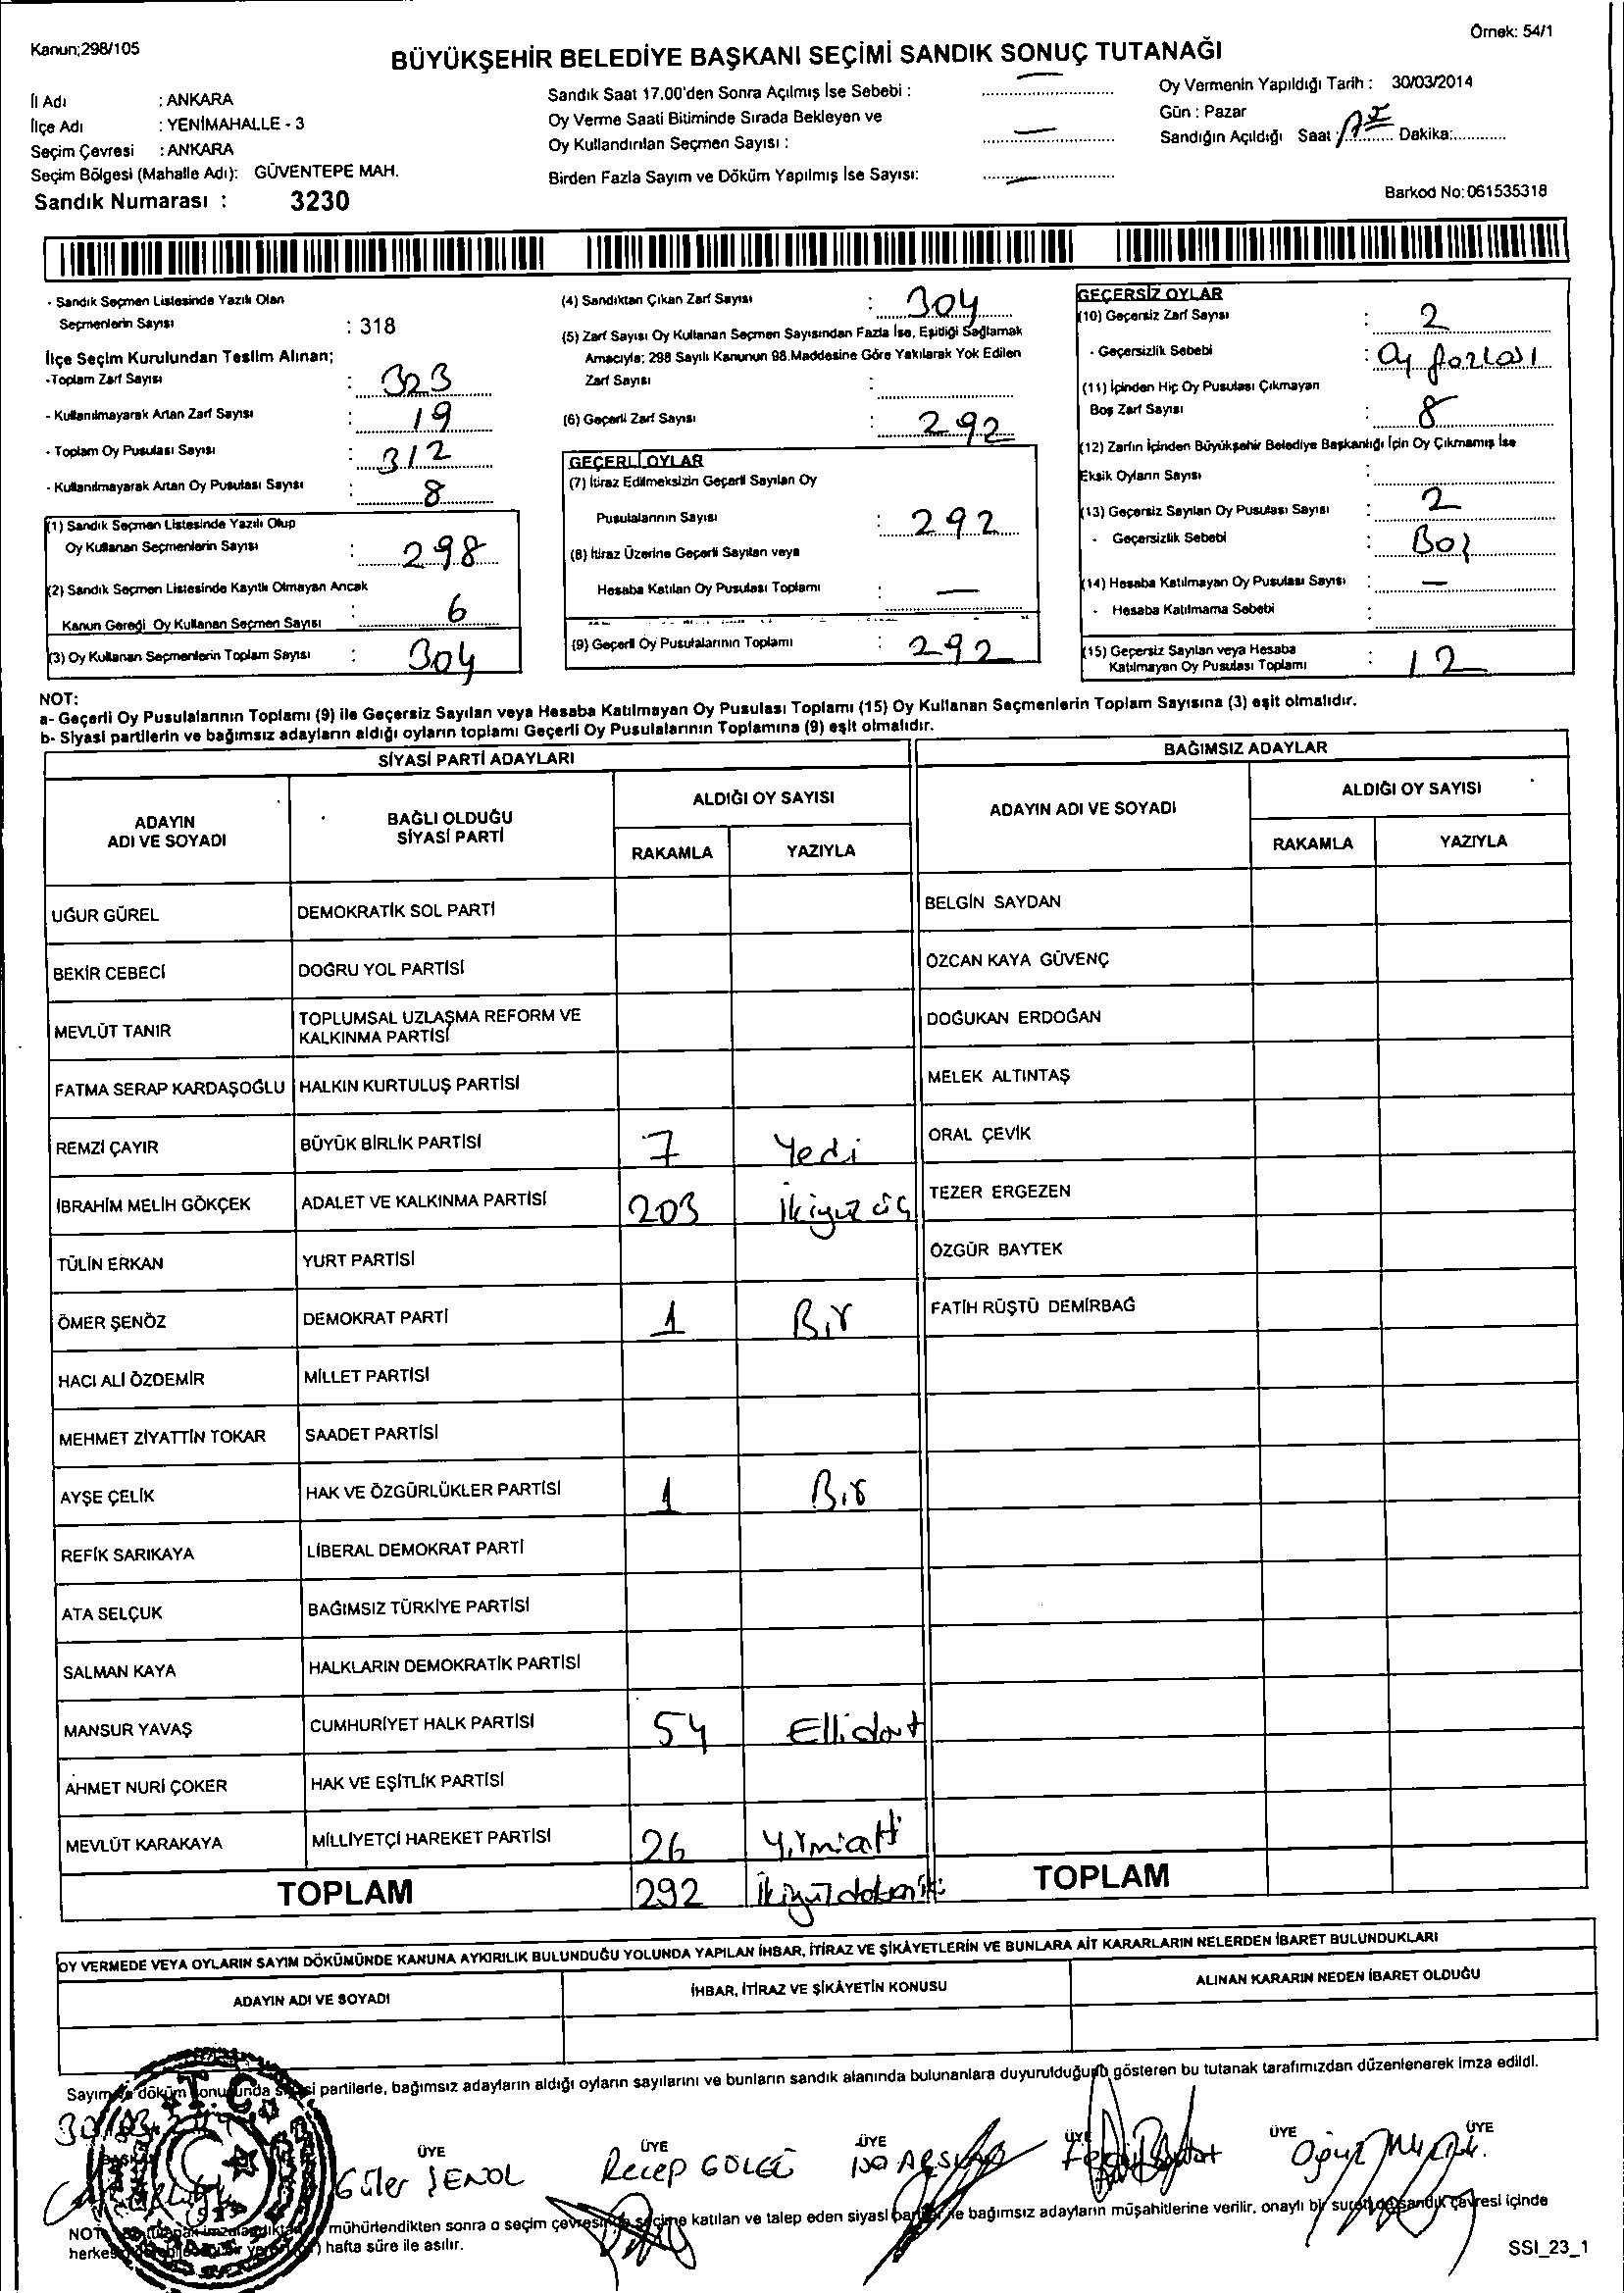 Kanun;298/105
Örnek: 54/1
BÜYÜKŞEHİR BELEDİYE BAŞKANI SEÇİMİ SANDIK SONUÇ TUTANAĞI
İl Adı : ANKARA
İlçe Adı : YENİMAHALLE - 3
Seçim Çevresi : ANKARA
Seçim Bölgesi (Mahalle Adı): GÜVENTEPE MAH.
Sandık Numarası : 3230
Sandık Saat 17.00'den Sonra Açılmış İse Sebebi : —
Oy Verme Saati Bitiminde Sırada Bekleyen ve
Oy Kullandırılan Seçmen Sayısı : —
Birden Fazla Sayım ve Döküm Yapılmış İse Sayısı: —
Oy Vermenin Yapıldığı Tarih : 30/03/2014
Gün : Pazar
Sandığın Açıldığı Saat : 17 Dakika:
Barkod No:061535318
- Sandık Seçmen Listesinde Yazılı Olan
Seçmenlerin Sayısı : 318
İlçe Seçim Kurulundan Teslim Alınan;
-Toplam Zarf Sayısı : 323
- Kullanılmayarak Artan Zarf Sayısı : 19
- Toplam Oy Pusulası Sayısı : 312
- Kullanılmayarak Artan Oy Pusulası Sayısı : 8
(1) Sandık Seçmen Listesinde Yazılı Olup
Oy Kullanan Seçmenlerin Sayısı : 298
(2) Sandık Seçmen Listesinde Kayıtlı Olmayan Ancak
Kanun Gereği Oy Kullanan Seçmen Sayısı : 6
(3) Oy Kullanan Seçmenlerin Toplam Sayısı : 304
(4) Sandıktan Çıkan Zarf Sayısı : 304
(5) Zarf Sayısı Oy Kullanan Seçmen Sayısından Fazla İse, Eşitliği Sağlamak
Amacıyla; 298 Sayılı Kanunun 98.Maddesine Göre Yakılarak Yok Edilen
Zarf Sayısı :
(6) Geçerli Zarf Sayısı : 292
GEÇERLİ OYLAR
(7) İtiraz Edilmeksizin Geçerli Sayılan Oy
Pusulalarının Sayısı : 292
(8) İtiraz Üzerine Geçerli Sayılan veya
Hesaba Katılan Oy Pusulası Toplamı : —
(9) Geçerli Oy Pusulalarının Toplamı : 292
GEÇERSİZ OYLAR
(10) Geçersiz Zarf Sayısı : 2
- Geçersizlik Sebebi : Oy fazlası
(11) İçinden Hiç Oy Pusulası Çıkmayan
Boş Zarf Sayısı : 8
(12) Zarfın İçinden Büyükşehir Belediye Başkanlığı İçin Oy Çıkmamış İse
Eksik Oyların Sayısı :
(13) Geçersiz Sayılan Oy Pusulası Sayısı : 2
- Geçersizlik Sebebi : Boş
(14) Hesaba Katılmayan Oy Pusulası Sayısı : —
- Hesaba Katılmama Sebebi :
(15) Geçersiz Sayılan veya Hesaba
Katılmayan Oy Pusulası Toplamı : 12
NOT:
a- Geçerli Oy Pusulalarının Toplamı (9) ile Geçersiz Sayılan veya Hesaba Katılmayan Oy Pusulası Toplamı (15) Oy Kullanan Seçmenlerin Toplam Sayısına (3) eşit olmalıdır.
b- Siyasi partilerin ve bağımsız adayların aldığı oyların toplamı Geçerli Oy Pusulalarının Toplamına (9) eşit olmalıdır.
SİYASİ PARTİ ADAYLARI
ADAYIN ADI VE SOYADI
BAĞLI OLDUĞU SİYASİ PARTİ
ALDIĞI OY SAYISI
RAKAMLA YAZIYLA
UĞUR GÜREL DEMOKRATİK SOL PARTİ
BEKİR CEBECİ DOĞRU YOL PARTİSİ
MEVLÜT TANIR TOPLUMSAL UZLAŞMA REFORM VE
KALKINMA PARTİSİ
FATMA SERAP KARDAŞOĞLU HALKIN KURTULUŞ PARTİSİ
REMZİ ÇAYIR BÜYÜK BİRLİK PARTİSİ 7 Yedi
İBRAHİM MELİH GÖKÇEK ADALET VE KALKINMA PARTİSİ 203 İkiyüz üç
TÜLİN ERKAN YURT PARTİSİ
ÖMER ŞENÖZ DEMOKRAT PARTİ 1 Bir
HACI ALİ ÖZDEMİR MİLLET PARTİSİ
MEHMET ZİYATTİN TOKAR SAADET PARTİSİ
AYŞE ÇELİK HAK VE ÖZGÜRLÜKLER PARTİSİ 1 Bir
REFİK SARIKAYA LİBERAL DEMOKRAT PARTİ
ATA SELÇUK BAĞIMSIZ TÜRKİYE PARTİSİ
SALMAN KAYA HALKLARIN DEMOKRATİK PARTİSİ
MANSUR YAVAŞ CUMHURİYET HALK PARTİSİ 54 Ellidört
AHMET NURİ ÇOKER HAK VE EŞİTLİK PARTİSİ
MEVLÜT KARAKAYA MİLLİYETÇİ HAREKET PARTİSİ 26 Yirmialtı
TOPLAM 292
BAĞIMSIZ ADAYLAR
ADAYIN ADI VE SOYADI
ALDIĞI OY SAYISI
RAKAMLA YAZIYLA
BELGİN SAYDAN
ÖZCAN KAYA GÜVENÇ
DOĞUKAN ERDOĞAN
MELEK ALTINTAŞ
ORAL ÇEVİK
TEZER ERGEZEN
ÖZGÜR BAYTEK
FATİH RÜŞTÜ DEMİRBAĞ
TOPLAM
OY VERMEDE VEYA OYLARIN SAYIM DÖKÜMÜNDE KANUNA AYKIRILIK BULUNDUĞU YOLUNDA YAPILAN İHBAR, İTİRAZ VE ŞİKÂYETLERİN VE BUNLARA AİT KARARLARIN NELERDEN İBARET BULUNDUKLARI
ADAYIN ADI VE SOYADI İHBAR, İTİRAZ VE ŞİKÂYETİN KONUSU ALINAN KARARIN NEDEN İBARET OLDUĞU
Sayım döküm sonucunda partilerle, bağımsız adayların aldığı oyların sayılarını ve bunların sandık alanında bulunanlara duyurulduğunu gösteren bu tutanak tarafımızdan düzenlenerek imza edildi.
T.C.
ÜYE ÜYE ÜYE ÜYE ÜYE ÜYE
Güler ŞENOL Recep Oğuz
NOT mühürlendikten sonra o seçim çevresinde seçime katılan ve talep eden siyasi partiler ile bağımsız adayların müşahitlerine verilir, onaylı bir sureti de sandık çevresi içinde
hafta süre ile asılır.
SSI_23_1